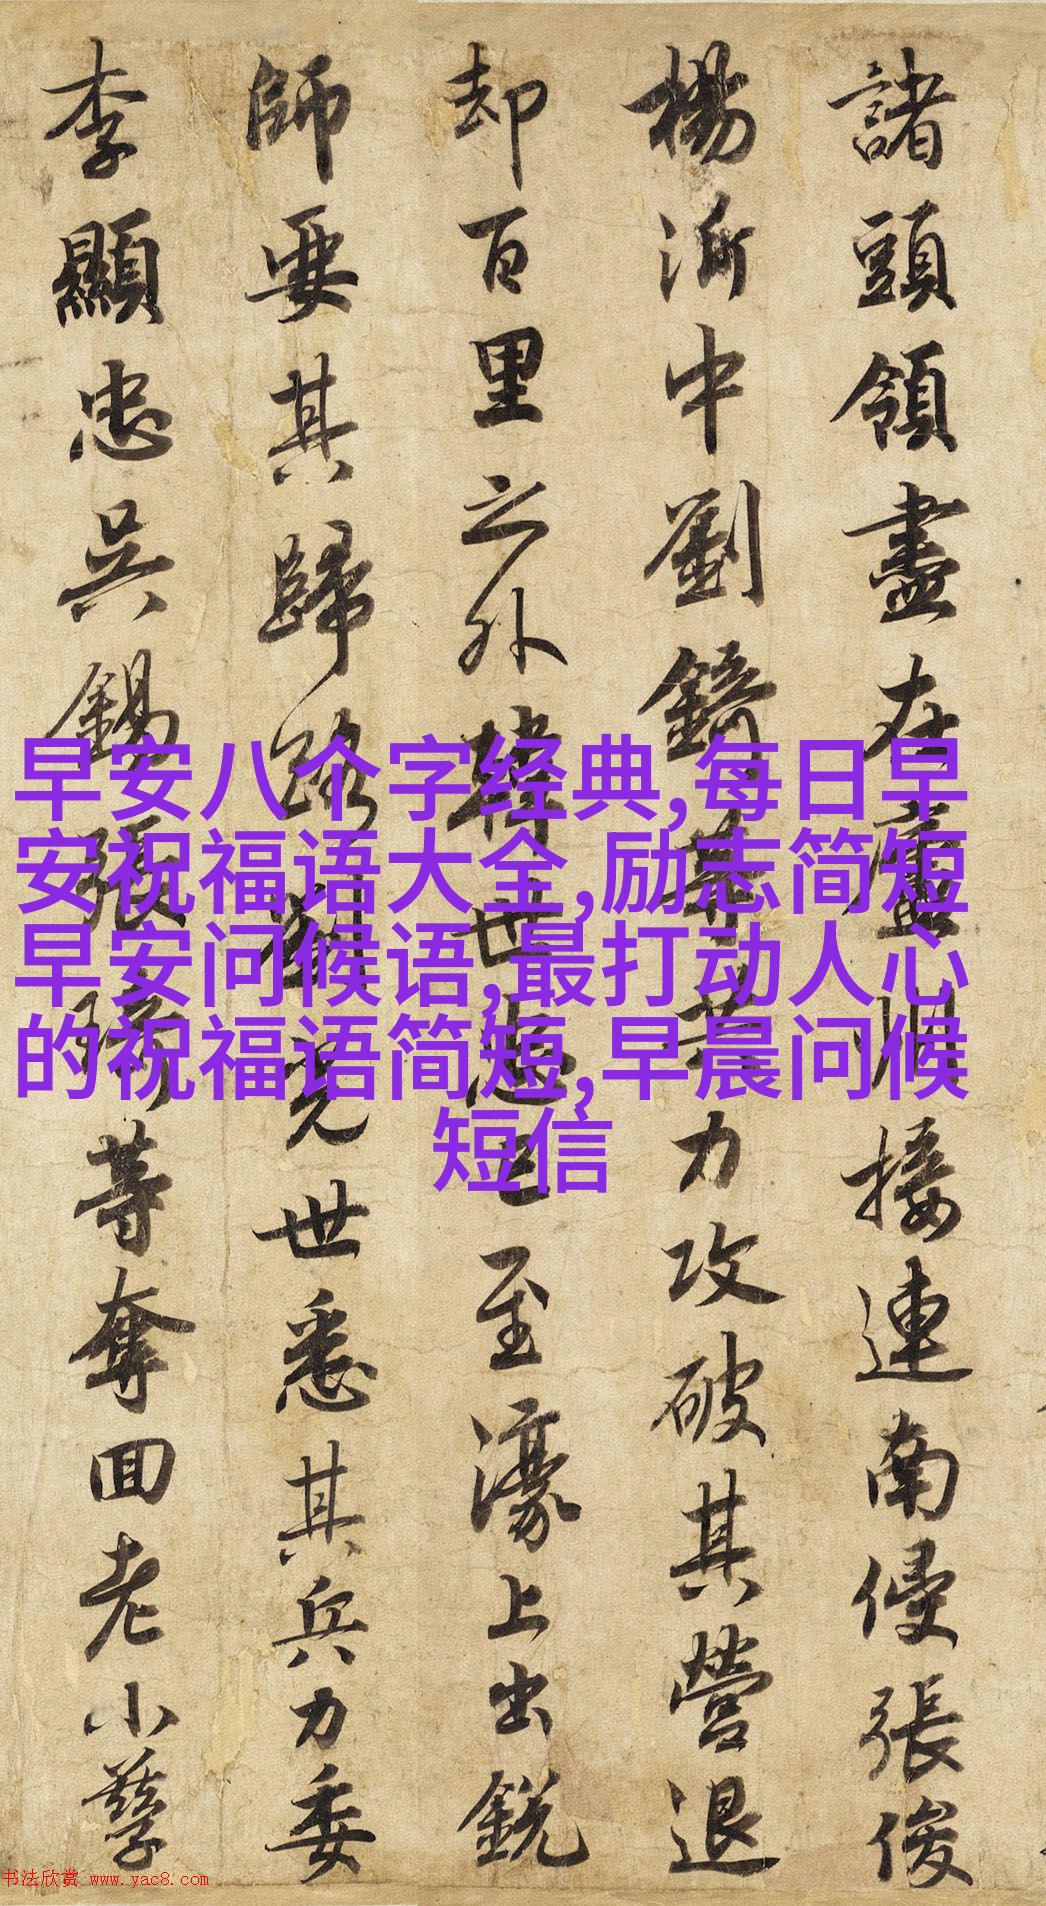 諸頭領盡在廬州接連南侵張俊
楊沂中劉錡等共力攻破其營退
却百里之外韓世忠已至濠上出銳
師要其歸路劉光世悉其兵力委
李顯忠吳錫張琦等奪回老小孳
早安八个字经典,每日早
安祝福语大全,励志简短
早安问候语,最打动人心
的祝福语简短,早晨问候
短信
书法欣赏 www.yac8.com